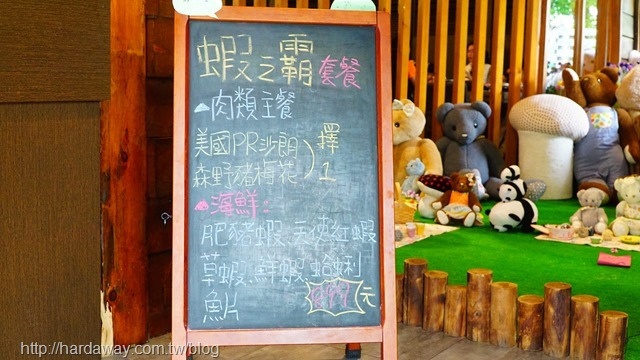 蝦之霸套餐
肉類主餐
美國PR沙朗
森野豬梅花
擇1
海鮮:
肥豬蝦 天使紅蝦
草蝦.鮮蝦.蛤蜊
魚片
899元
http://hardaway.com.tw/blog